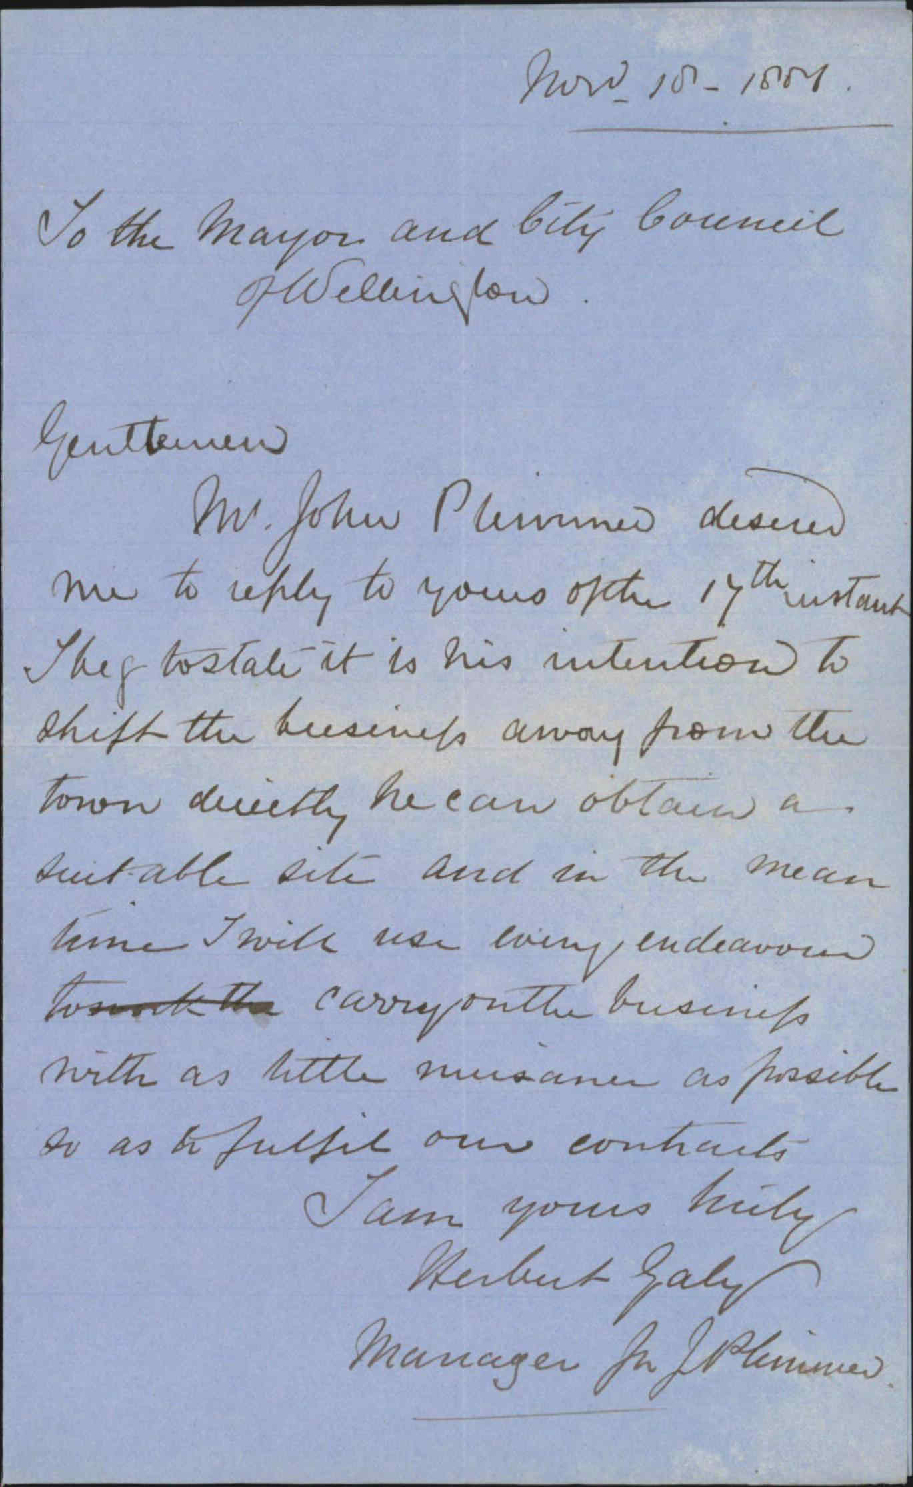 Novr 18 - 1881.
To the Mayor and City Council
of Wellington.
Gentlemen
Mr. John Plimmer desires
me to reply to yours of the 17th instant
I beg to state it is his intention to
shift the business away from the
town directly he can obtain a
suitable site and in the mean
time I will use every endeavour
to work the carry on the business
with as little nuisance as possible
so as to fulfil our contracts
I am yours truly
Herbert Galy
Manager for J Plimmer.